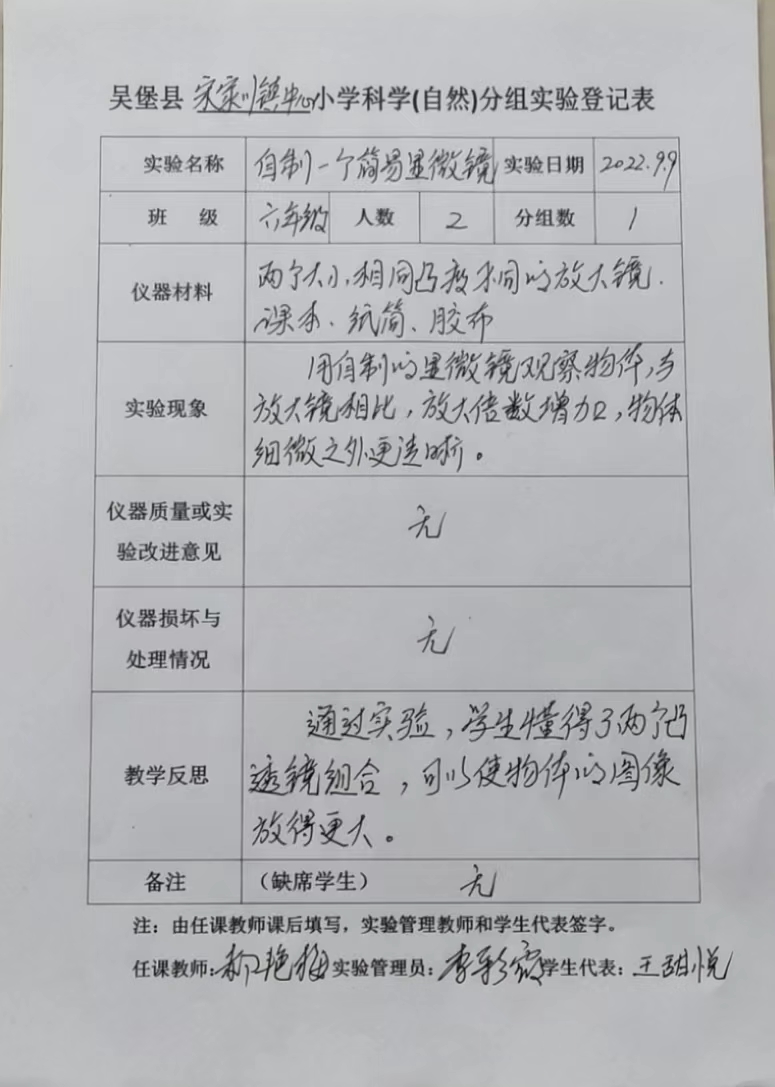 吴堡县 宋家川镇中心小学科学(自然)分组实验登记表
实验名称 自制一个简易显微镜 实验日期 2022.9.9
班 级 六年级 人数 2 分组数 1
仪器材料 两个大小相同凸度不同的放大镜.
课本、纸筒、胶布
实验现象 用自制的显微镜观察物体,与
放大镜相比,放大倍数增加,物体
细微之外更清晰。
仪器质量或实
验改进意见 无
仪器损坏与
处理情况 无
教学反思 通过实验,学生懂得了两个凸
透镜组合,可以使物体的图像
放得更大。
备注 (缺席学生) 无
注:由任课教师课后填写,实验管理教师和学生代表签字。
任课教师: 艳梅 实验管理员:李彩霞 学生代表:王甜悦